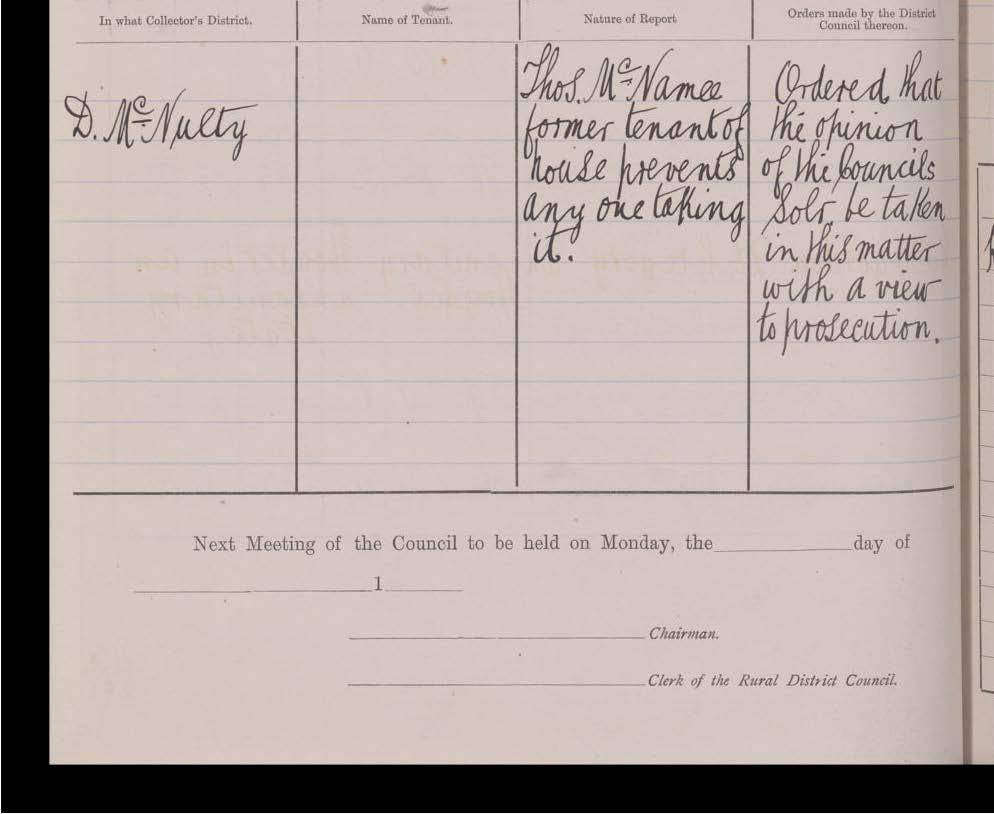 In what Collector's District.
Name of Tenant.
Nature of Report
Orders made by the District
Council thereon.
D. McNulty
Thos. McNamee
former tenant of
house prevents
any one taking
it.
Ordered that
the opinion
of the Councils
Solr. be taken
in this matter
with a view
to prosecution.
Next Meeting of the Council to be held on Monday, the day of
1
Chairman.
Clerk of the Rural District Council.